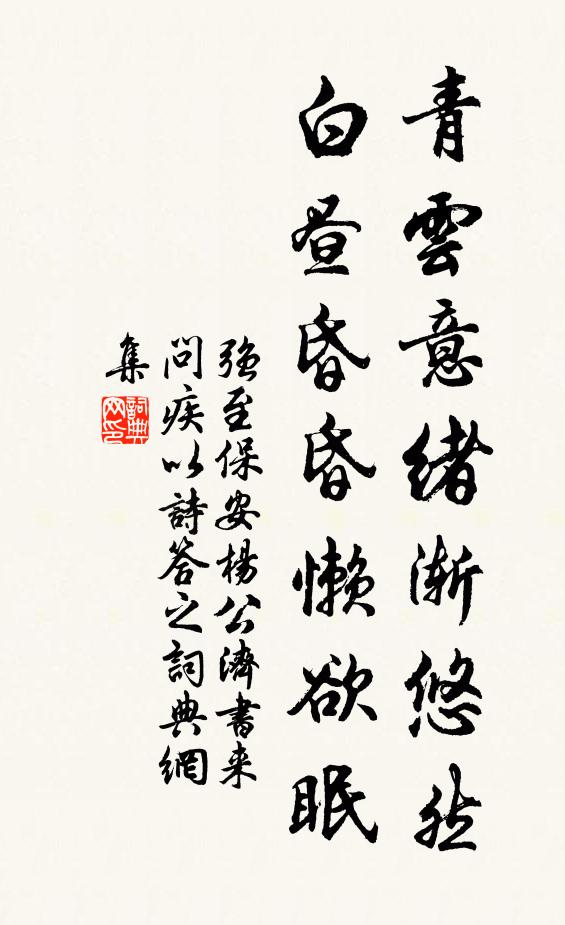 青雲意緒漸悠然
白昼昏昏懶欲眠
强至保安楊公濟書来
問疾以詩答之詞典網
集
詞典
网印